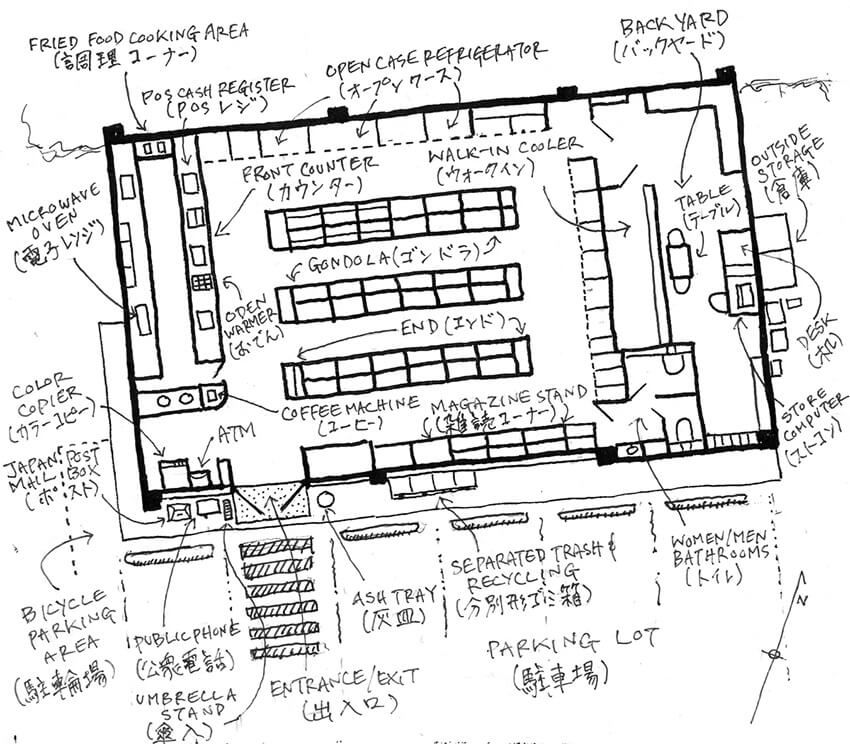 FRIED FOOD COOKING AREA
(調理コーナー)
POS CASH REGISTER
(POSレジ)
OPEN CASE REFRIGERATOR
(オープンケース)
BACKYARD
(バックヤード)
FRONT COUNTER
(カウンター)
WALK-IN COOLER
(ウォークイン)
OUTSIDE
STORAGE
(倉庫)
MICROWAVE
OVEN
(電子レンジ)
TABLE
(テーブル)
GONDOLA (ゴンドラ)
ODEN
WARMER
(おでん)
END (エンド)
DESK
(机)
COLOR
COPIER
(カラーコピー)
COFFEE MACHINE
(コーヒー)
MAGAZINE STAND
(雑誌コーナー)
STORE
COMPUTER
(ストコン)
ATM
JAPAN POST
MAIL BOX
(ポスト)
BICYCLE
PARKING
AREA
(駐輪場)
PUBLIC PHONE
(公衆電話)
UMBRELLA
STAND
(傘入)
ENTRANCE/EXIT
(出入口)
ASH TRAY
(灰皿)
SEPARATED TRASH &
RECYCLING
(分別形ゴミ箱)
WOMEN/MEN
BATHROOMS
(トイレ)
PARKING LOT
(駐車場)
N